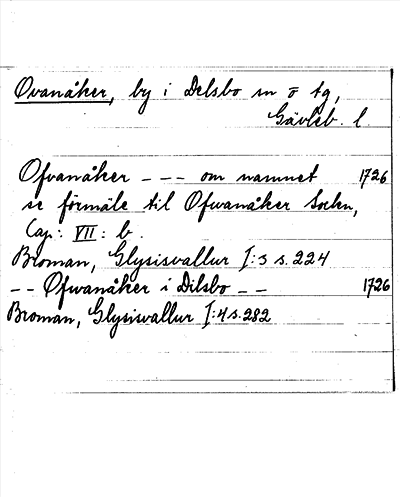 Ovanåker, by i Delsbo sn o tg,
Gävleb. l.
Ofvanåker - - - om namnet 1726
se förmäle til Ofwanåker Sochn,
Cap: VII: b.
Broman, Glysisvallur I:3 s. 224
- - Ofwanåker i Dilsbo - - 1726
Broman, Glysisvallur I:4 s. 282